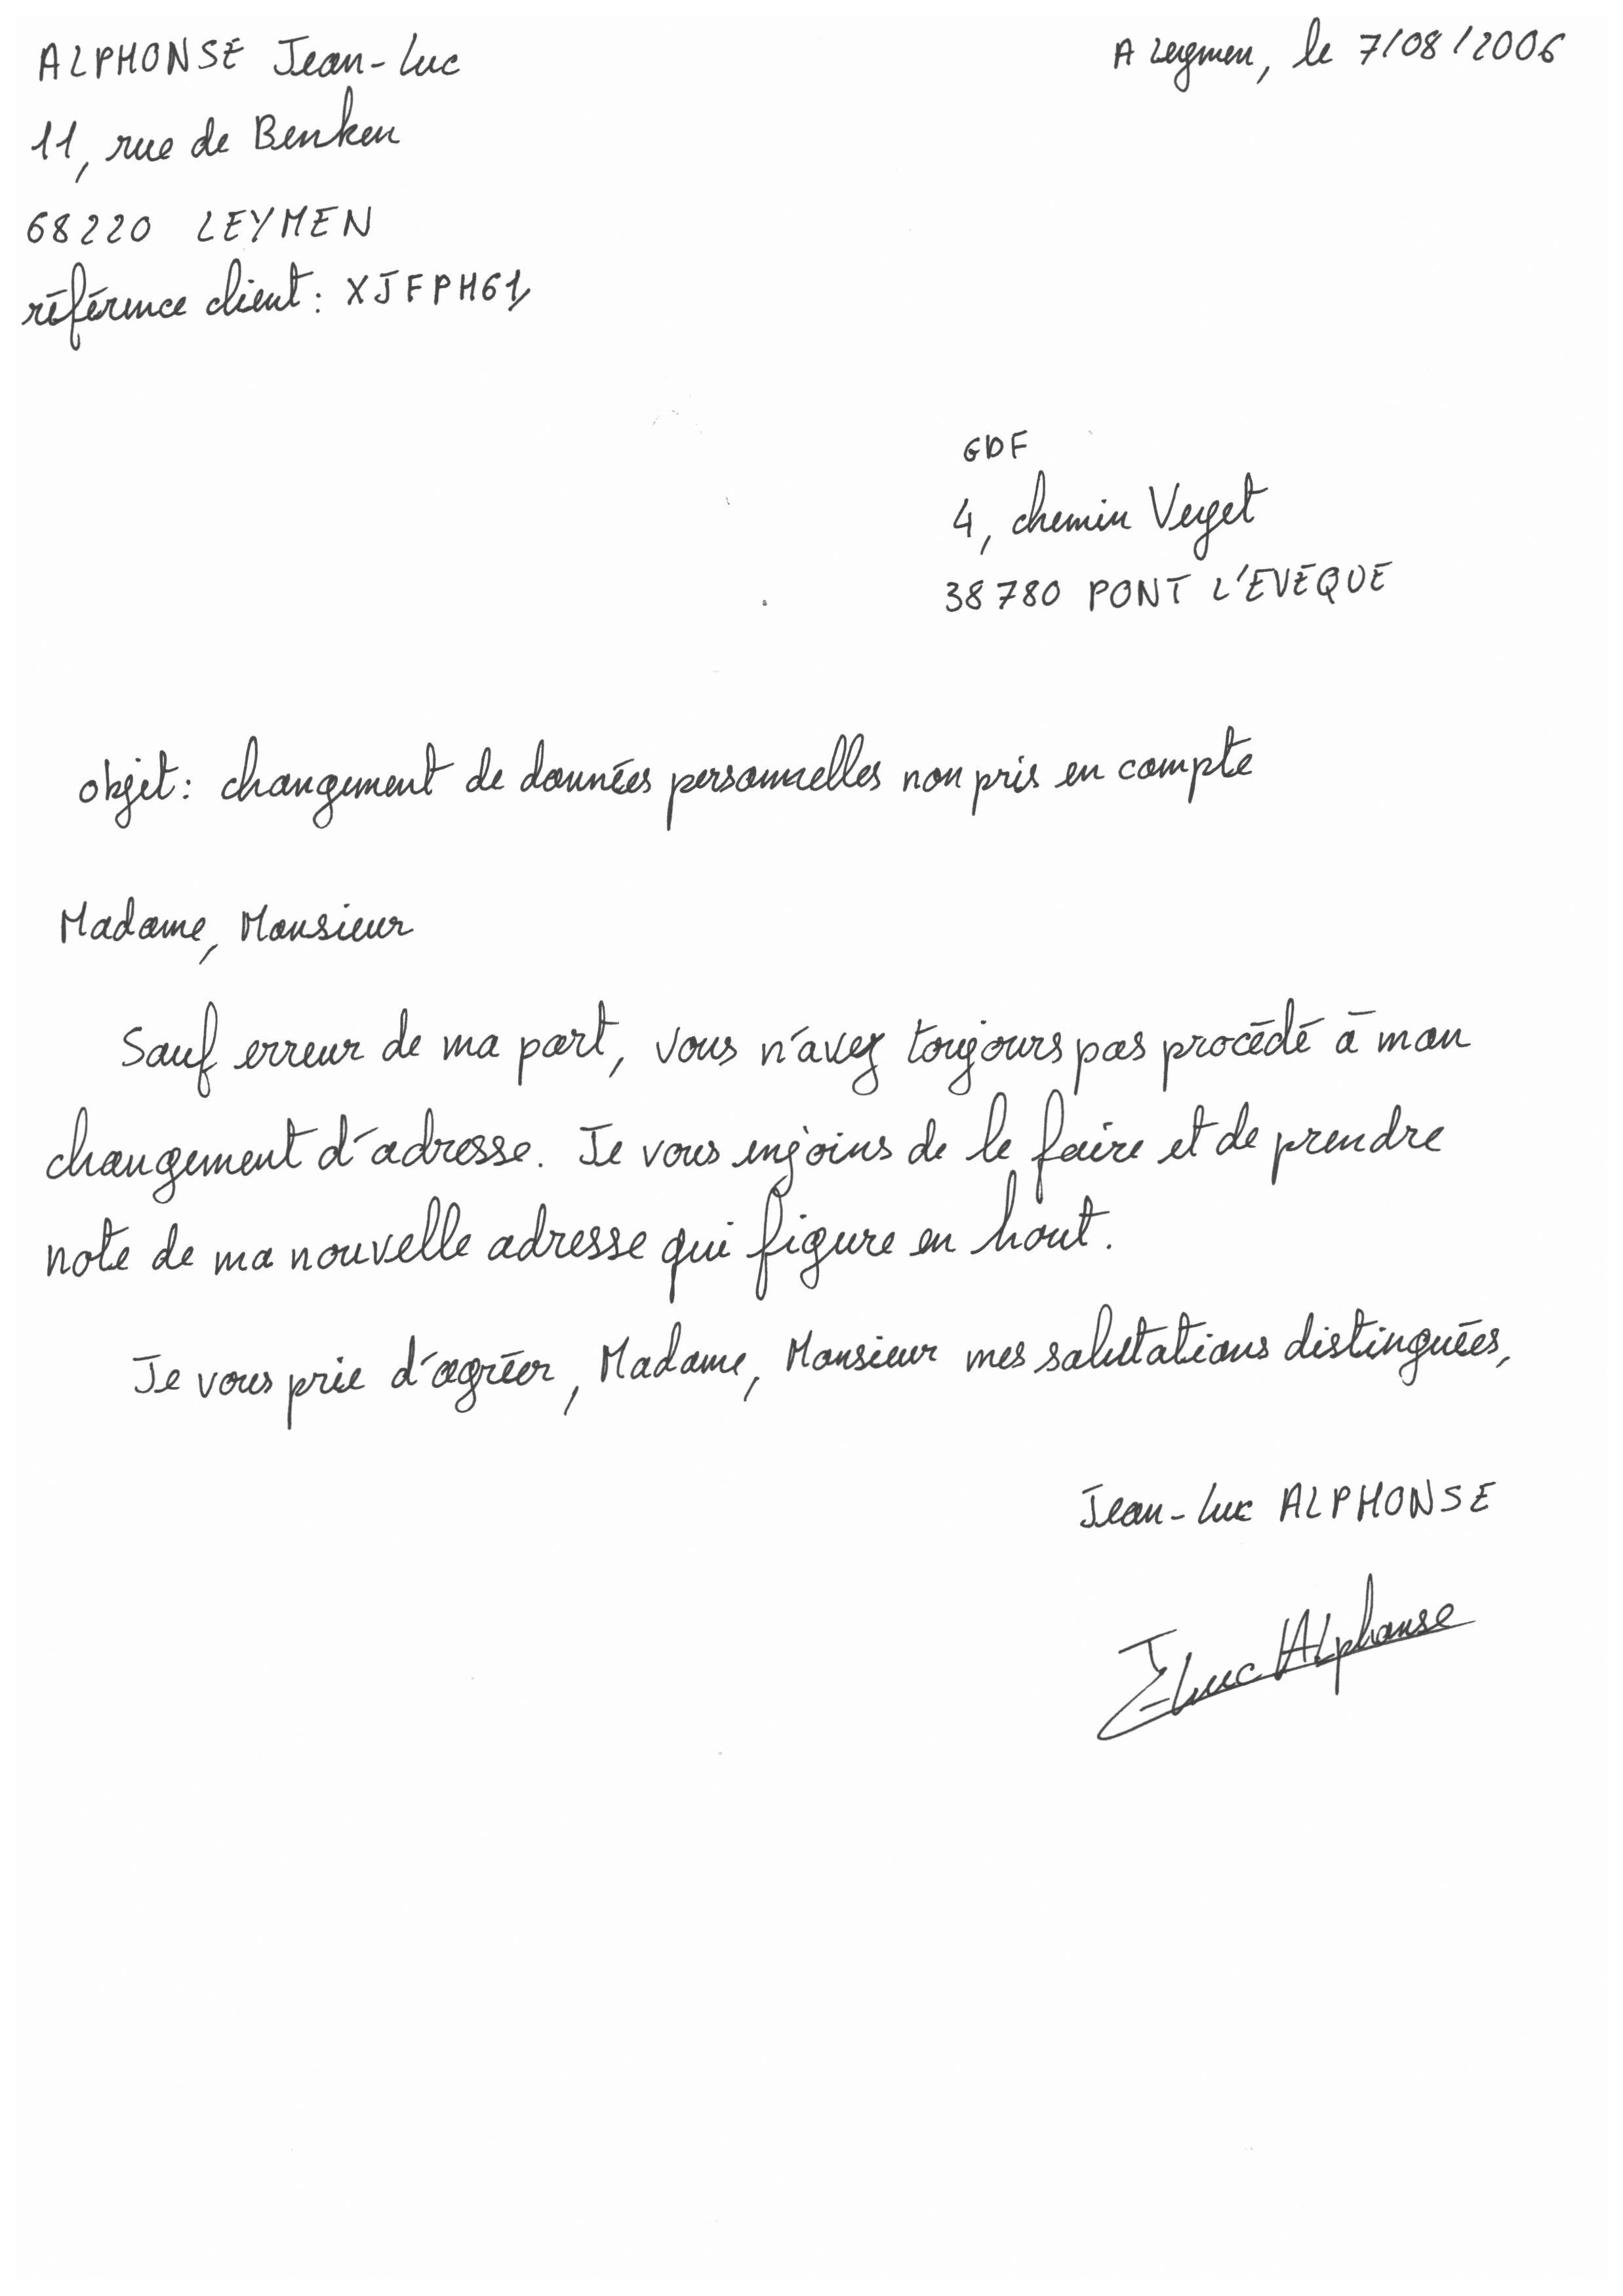 ALPHONSE Jean-Luc
A Leymen, le 7/08/2006
11, rue de Benken
68220 LEYMEN
référence client : XJFPH61
GDF
4, chemin Verget
38780 PONT L'EVÉQUE
objet : changement de données personnelles non pris en compte
Madame, Monsieur
Sauf erreur de ma part, vous n'avez toujours pas procédé à mon
changement d'adresse. Je vous enjoins de le faire et de prendre
note de ma nouvelle adresse qui figure en haut.
Je vous prie d'agréer, Madame, Monsieur mes salutations distinguées,
Jean-Luc ALPHONSE
JLuc Alphonse